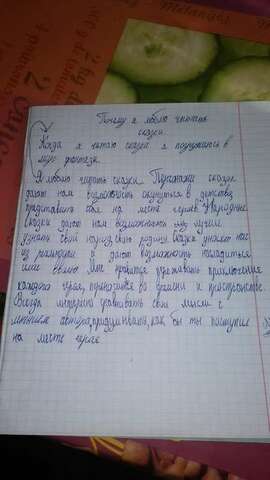 Почему я люблю читать
сказки.
Когда я читаю сказки я погружаюсь в
мир фантазии.
Я люблю читать сказки. сказок
дают нам возможность окунуться в детство,
представить себя на месте героев. Народные
сказки дают нам возможность лучше
узнать свой народ, свою родину. Сказки уносят нас
из реальности и дают возможность насладиться
ими Мне нравится переживать приключения
каждого героя, переносится во времени и пространстве.
Всегда интересно сравнивать свои мысли с
мнением автора, придумывать, как бы ты поступил
на месте героя